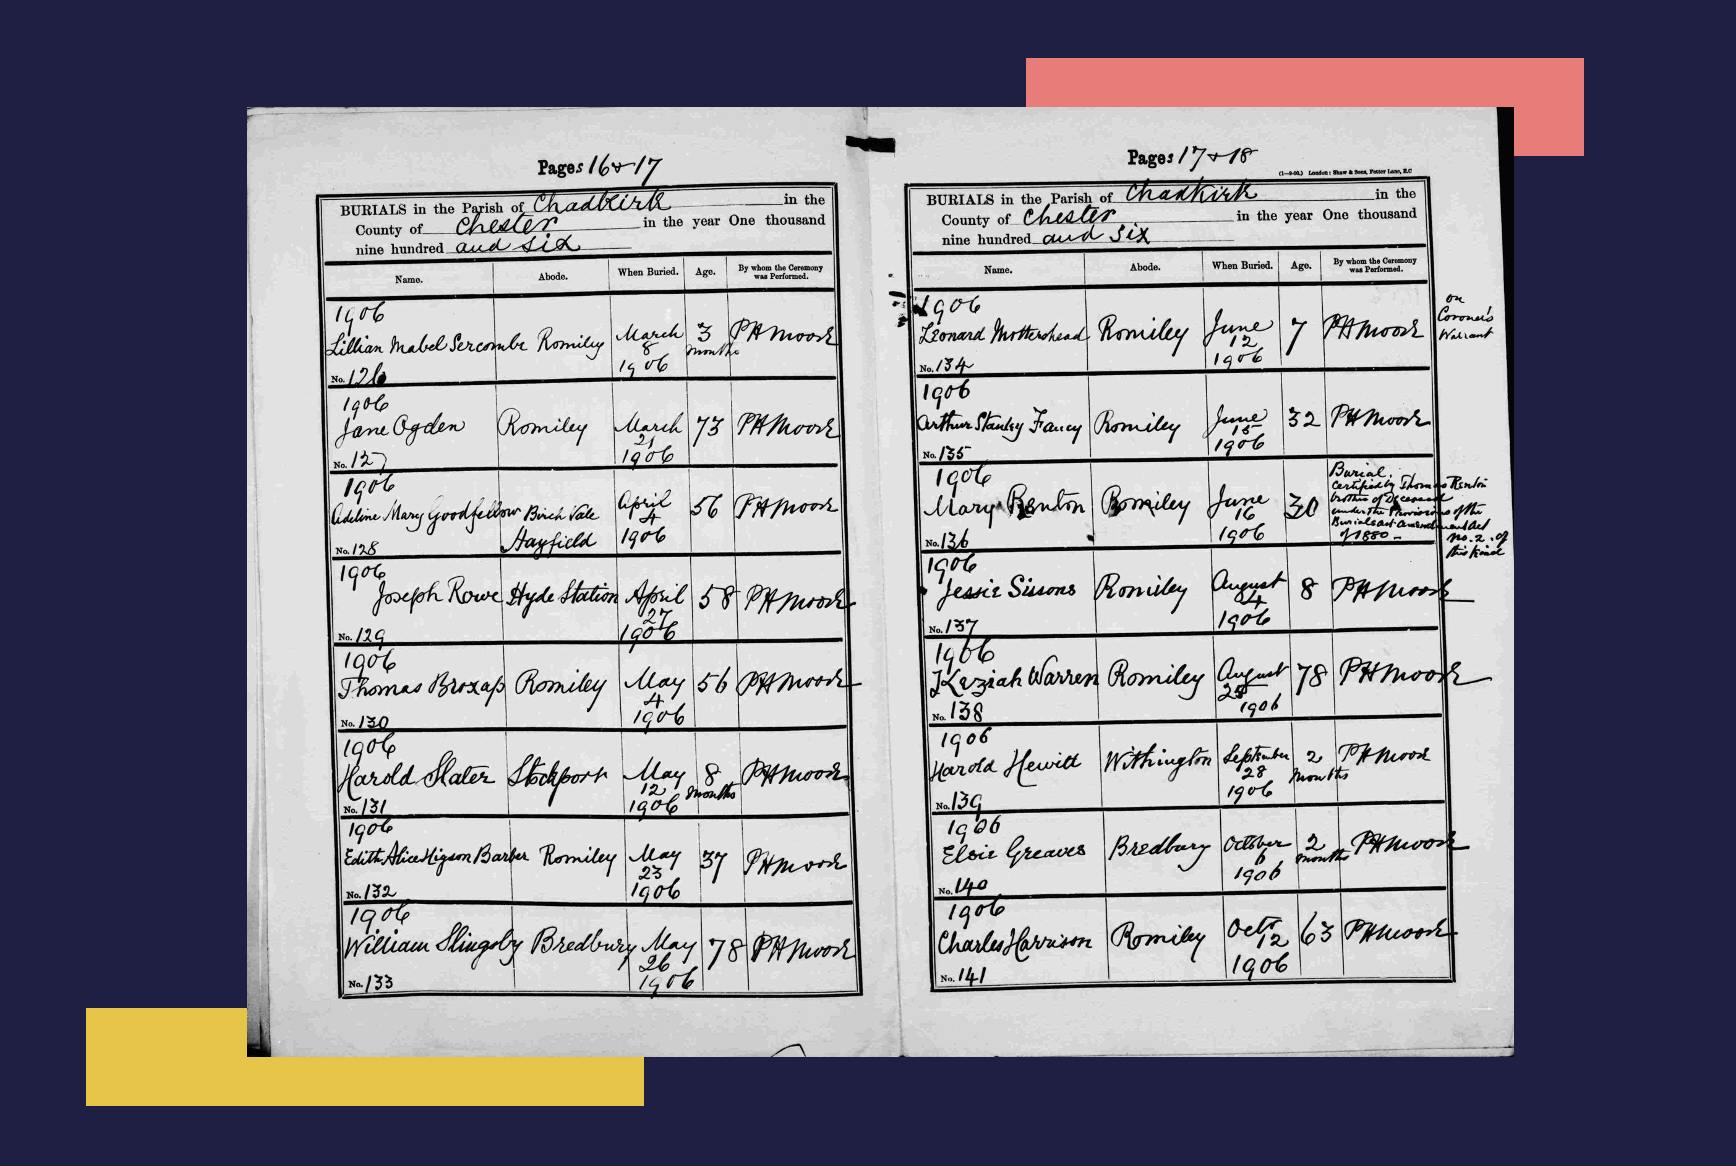 Pages 16 & 17
BURIALS in the Parish of Chadkirk in the
County of Chester in the year One thousand
nine hundred and six
Name. Abode. When Buried. Age. By whom the Ceremony was Performed.
1906
Lillian Mabel Sercombe Romiley March 8 1906 3 months PHMoore
No. 126
1906
Jane Ogden Romiley March 21 1906 73 PHMoore
No. 127
1906
Adeline Mary Goodfellow Birch Vale Hayfield April 4 1906 56 PHMoore
No. 128
1906
Joseph Rowe Hyde Station April 27 1906 58 PHMoore
No. 129
1906
Thomas Broxap Romiley May 4 1906 56 PHMoore
No. 130
1906
Harold Slater Stockport May 12 1906 8 months PHMoore
No. 131
1906
Edith Alice Higson Barber Romiley May 23 1906 37 PHMoore
No. 132
1906
William Slingsby Bredbury May 26 1906 78 PHMoore
No. 133
Pages 17 & 18
(1—9-00.) London: Shaw & Sons, Fetter Lane, E.C
BURIALS in the Parish of Chadkirk in the
County of Chester in the year One thousand
nine hundred and six
Name. Abode. When Buried. Age. By whom the Ceremony was Performed.
1906
Leonard Mottershead Romiley June 12 1906 7 PHMoore
on
Coroner's
Warrant
No. 134
1906
Arthur Stanley Fancy Romiley June 15 1906 32 PHMoore
No. 135
1906
Mary Renton Romiley June 16 1906 30
Burial
certified by Thomas Renton
brother of Deceased
under the Provisions of the
Burials act amendment Act
of 1880 -
No. 2. of
this kind
No. 136
1906
Jessie Sissons Romiley August 4 1906 8 PHMoore
No. 137
1906
Keziah Warren Romiley August 25 1906 78 PHMoore
No. 138
1906
Harold Hewitt Withington September 28 1906 2 months PHMoore
No. 139
1906
Elsie Greaves Bredbury October 6 1906 2 months PHMoore
No. 140
1906
Charles Harrison Romiley Octr 12 1906 63 PHMoore
No. 141